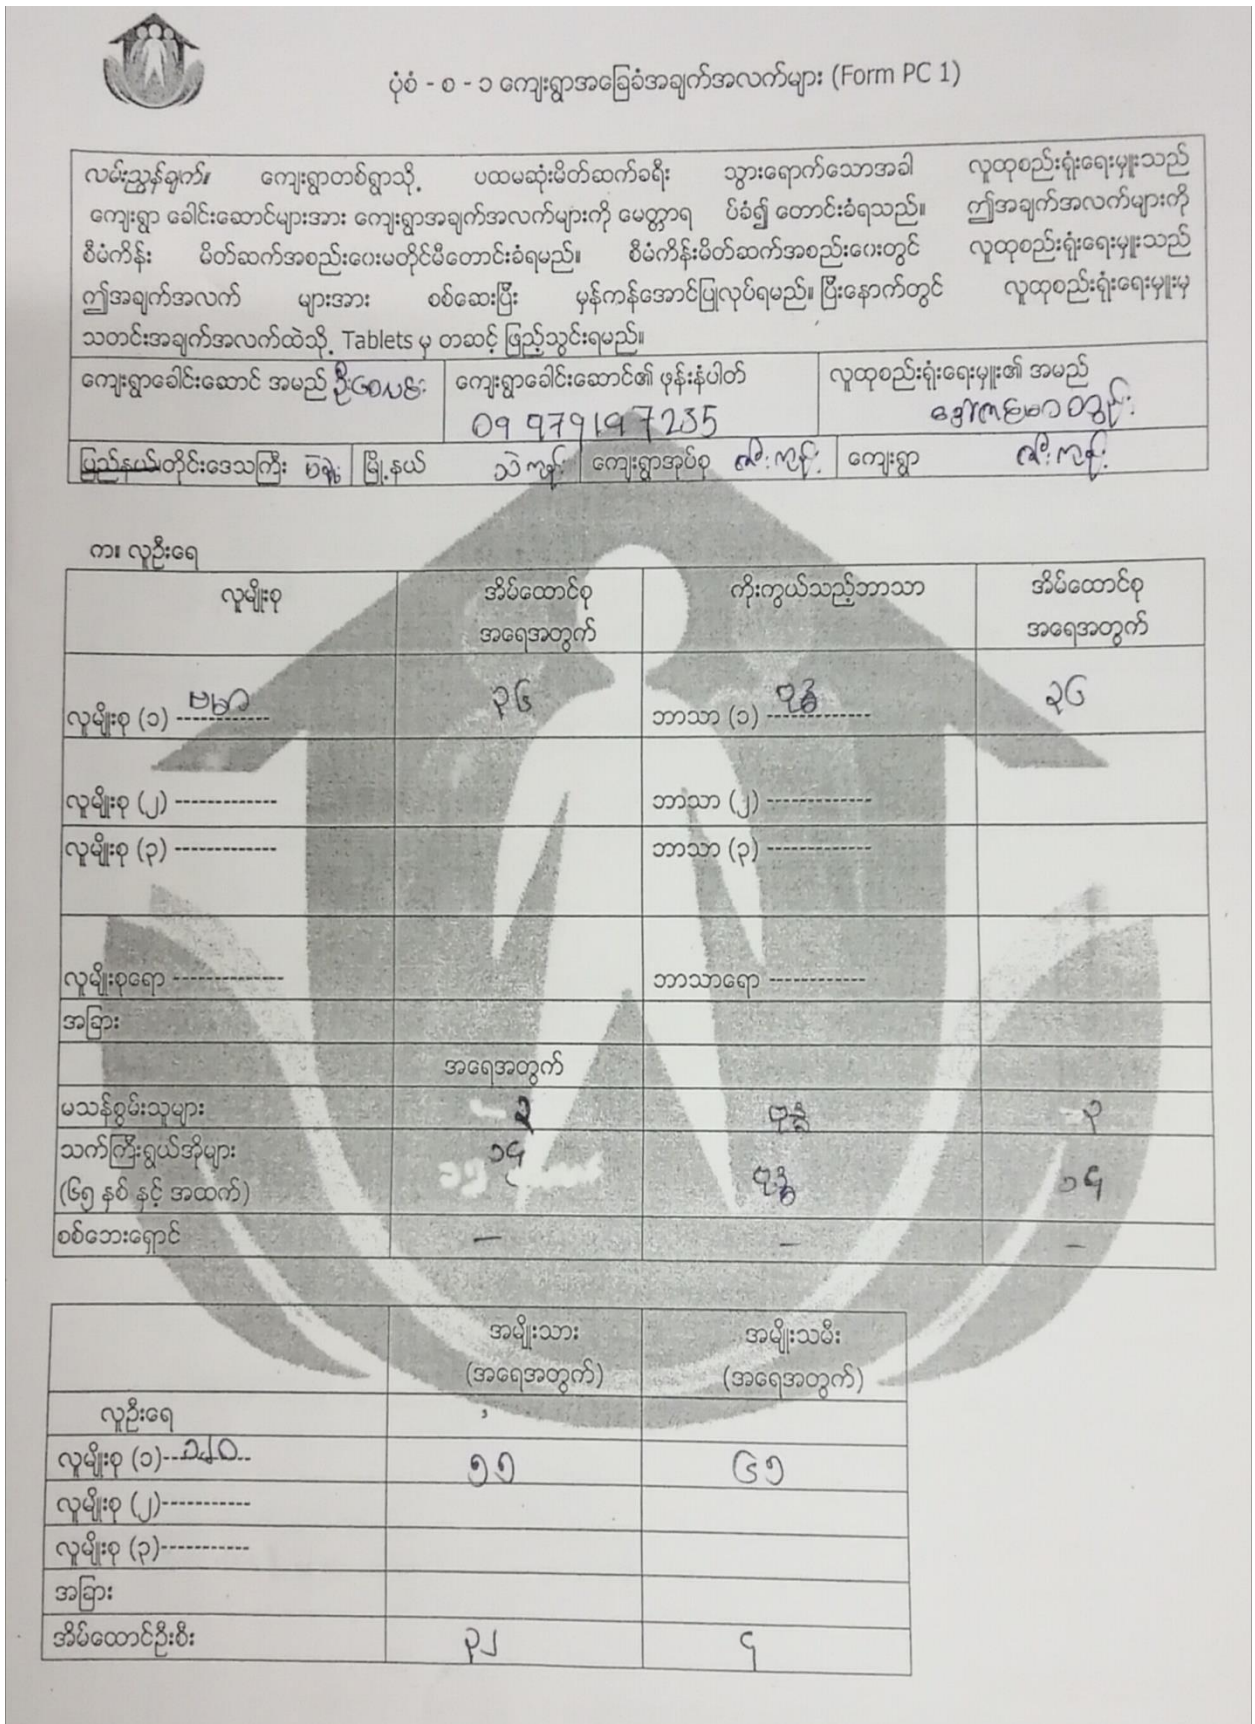 ပုံစံ - စ - ၁ ကျေးရွာအခြေခံအချက်အလက်များ (Form PC 1)
လမ်းညွှန်ချက်။ ကျေးရွာတစ်ရွာသို့ ပထမဆုံးမိတ်ဆက်ခရီး သွားရောက်သောအခါ လူထုစည်းရုံးရေးမှူးသည်
ကျေးရွာ ခေါင်းဆောင်များအား ကျေးရွာအချက်အလက်များကို မေတ္တာရ ပ်ခံ၍ တောင်းခံရသည်။ ဤအချက်အလက်များကို
စီမံကိန်း မိတ်ဆက်အစည်းဝေးမတိုင်မီတောင်းခံရမည်။ စီမံကိန်းမိတ်ဆက်အစည်းဝေးတွင် လူထုစည်းရုံးရေးမှူးသည်
ဤအချက်အလက် များအား စစ်ဆေးပြီး မှန်ကန်အောင်ပြုလုပ်ရမည်။ ပြီးနောက်တွင် လူထုစည်းရုံးရေးမှူးမှ
သတင်းအချက်အလက်ထဲသို့ Tablets မှ တဆင့် ဖြည့်သွင်းရမည်။
ကျေးရွာခေါင်းဆောင် အမည် ကျေးရွာခေါင်းဆောင်၏ ဖုန်းနံပါတ် လူထုစည်းရုံးရေးမှူး၏ အမည်
09 979197235
ပြည်နယ်/တိုင်းဒေသကြီး ပဲခူး မြို့နယ် သဲကုန်း ကျေးရွာအုပ်စု ဇီးကုန်း ကျေးရွာ ဇီးကုန်း
က။ လူဦးရေ
လူမျိုးစု အိမ်ထောင်စု ကိုးကွယ်သည့်ဘာသာ အိမ်ထောင်စု
အရေအတွက် အရေအတွက်
လူမျိုးစု (၁) ဗမာ ၃၆ ဘာသာ (၁) ဗုဒ္ဓ ၃၆
လူမျိုးစု (၂) ------------- ဘာသာ (၂) -------------
လူမျိုးစု (၃) ------------- ဘာသာ (၃) -------------
လူမျိုးစုရော ------------- ဘာသာရော ------------
အခြား
အရေအတွက်
မသန်စွမ်းသူများ ၃ ဗုဒ္ဓ ၃
သက်ကြီးရွယ်အိုများ ၁၄
(၆၅ နှစ် နှင့် အထက်) ဗုဒ္ဓ ၁၄
စစ်ဘေးရှောင် - - -
အမျိုးသား အမျိုးသမီး
(အရေအတွက်) (အရေအတွက်)
လူဦးရေ
လူမျိုးစု (၁) ၁၂၀ ၅၅ ၆၅
လူမျိုးစု (၂)-----------
လူမျိုးစု (၃)-----------
အခြား
အိမ်ထောင်ဦးစီး ၃၂ ၄